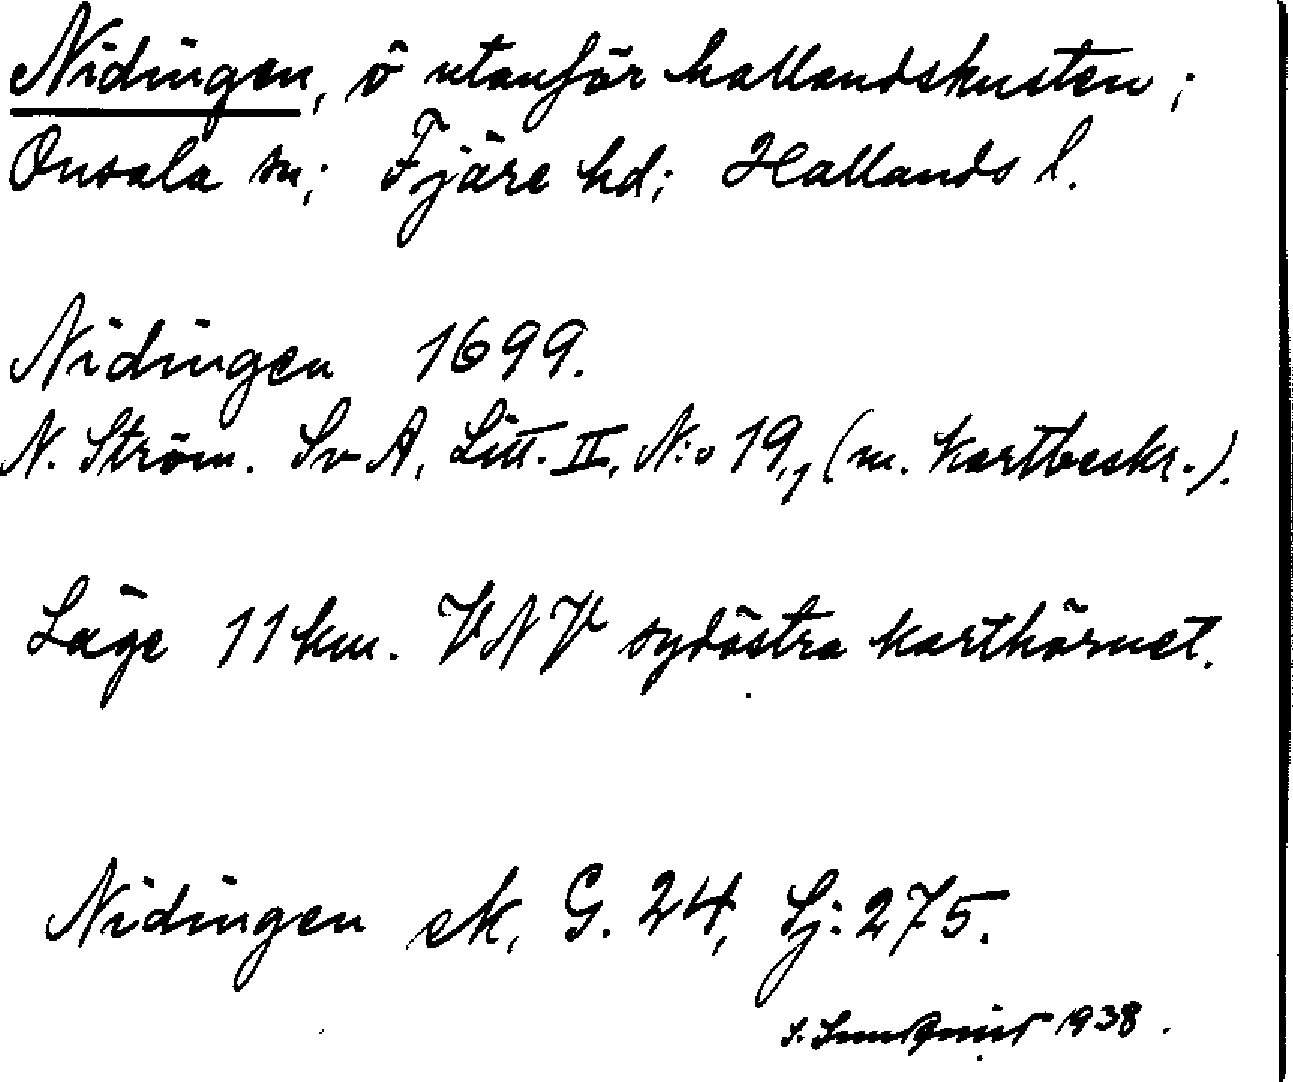 Nidingen, ö utanför hallandskusten;
Onsala sn; Fjäre hd; Hallands l.
Nidingen 1699.
N. Ström. Sv A, Litt. II, N:o 19,, (m. Kartbeskr.).
Läge 11 km. VNV sydöstra karthörnet.
Nidingen ek, G. 24, Sj: 275.
S. 1938.